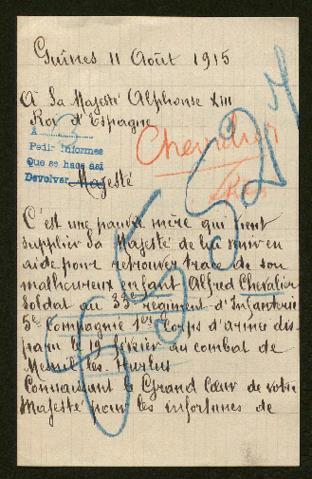 Guines 11 Août 1915
À Sa Majesté Alphonse XIII
Roi d'Espagne
Chevalier
A
Pedir informes
Que se hace así
Devolver
Majesté
C'est une pauvre mère qui vient
supplier Sa Majesté de lui venir en
aide pour retrouver trace de son
malheureux enfant Alfred Chevalier
soldat au 33e regiment d'Infanterie
5e compagnie 1er Corps d'armée dis-
paru le 19 février au combat de
Mesnil-les-Hurlus
Connaissant le Grand Cœur de votre
Majesté pour les infortunes de